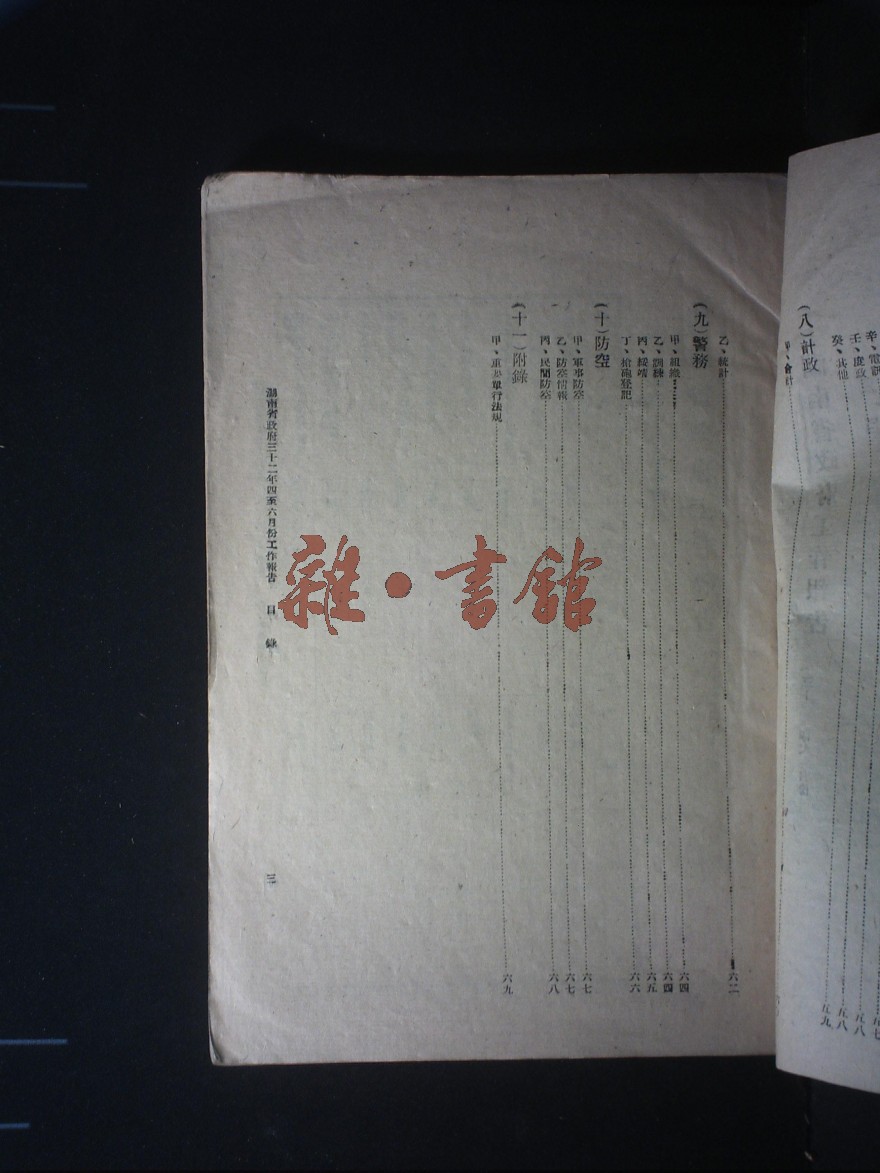 辛、電訊 五七
壬、度政 五八
癸、其他 五八
(八)計政
甲、會計 五九
乙、統計 六二
(九)警務
甲、組織 六四
乙、訓練 六四
丙、綏靖 六五
丁、槍砲登記 六六
(十)防空
甲、軍事防空 六七
乙、防空情報 六七
丙、民間防空 六八
(十一)附錄
甲、重要單行法規 六九
湖南省政府三十二年四至六月份工作報告 目錄 三
雜·書館